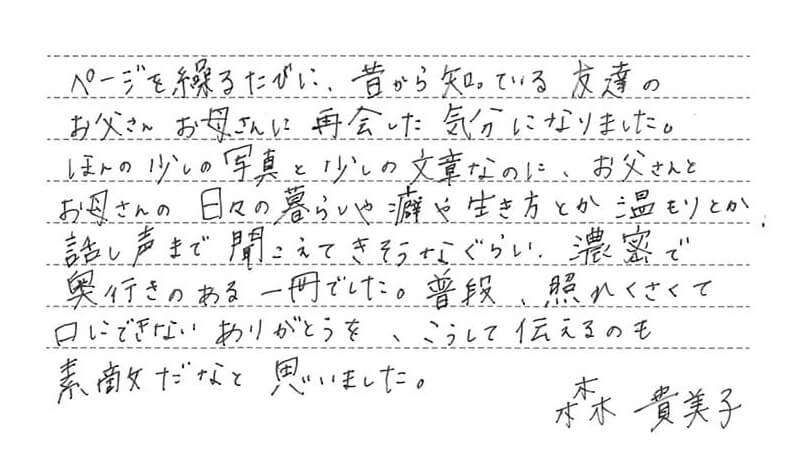 ページを繰るたびに、昔から知っている友達の
お父さんお母さんに再会した気分になりました。
ほんの少しの写真と少しの文章なのに、お父さんと
お母さんの日々の暮らしや癖や生き方とか温もりとか、
話し声まで聞こえてきそうなぐらい、濃密で
奥行きのある一冊でした。普段、照れくさくて
口にできないありがとうを、こうして伝えるのも
素敵だなと思いました。
森 貴美子